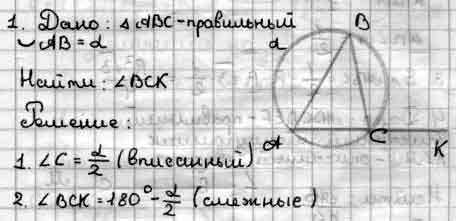 1. Дано: △ABC-правильный
◡AB = α
Найти: ∠BCK
Решение:
1. ∠C = α/2 (вписанный)
2. ∠BCK = 180° - α/2 (смежные)
α
B
A
C
K